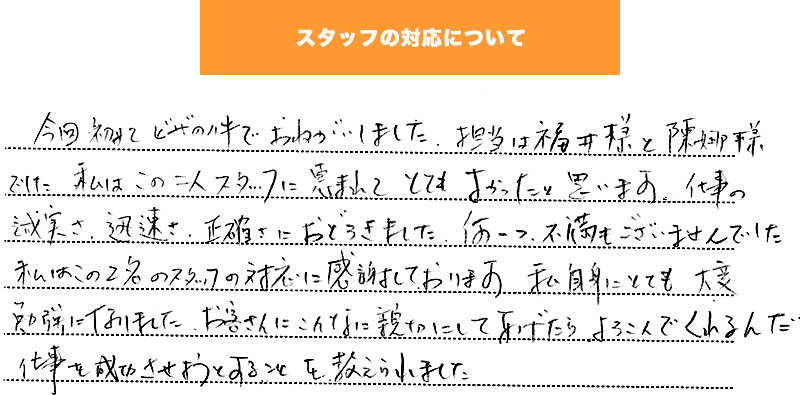 スタッフの対応について
今回初めてビザの件でおねがいしました。担当は福井様と陳娜様
でした 私はこの二人スタッフに恵まれて とても よかったと思います。仕事の
誠実さ、迅速さ、正確さにおどろきました。何一つ、不満もございませんでした
私はこの2名のスタッフの対応に感謝しております 私自身にとても 大変
勉強になりました。お客さんにこんなに親切にしてあげたら よろこんでくれるんだ
仕事を成功させようとすることを 教えられました